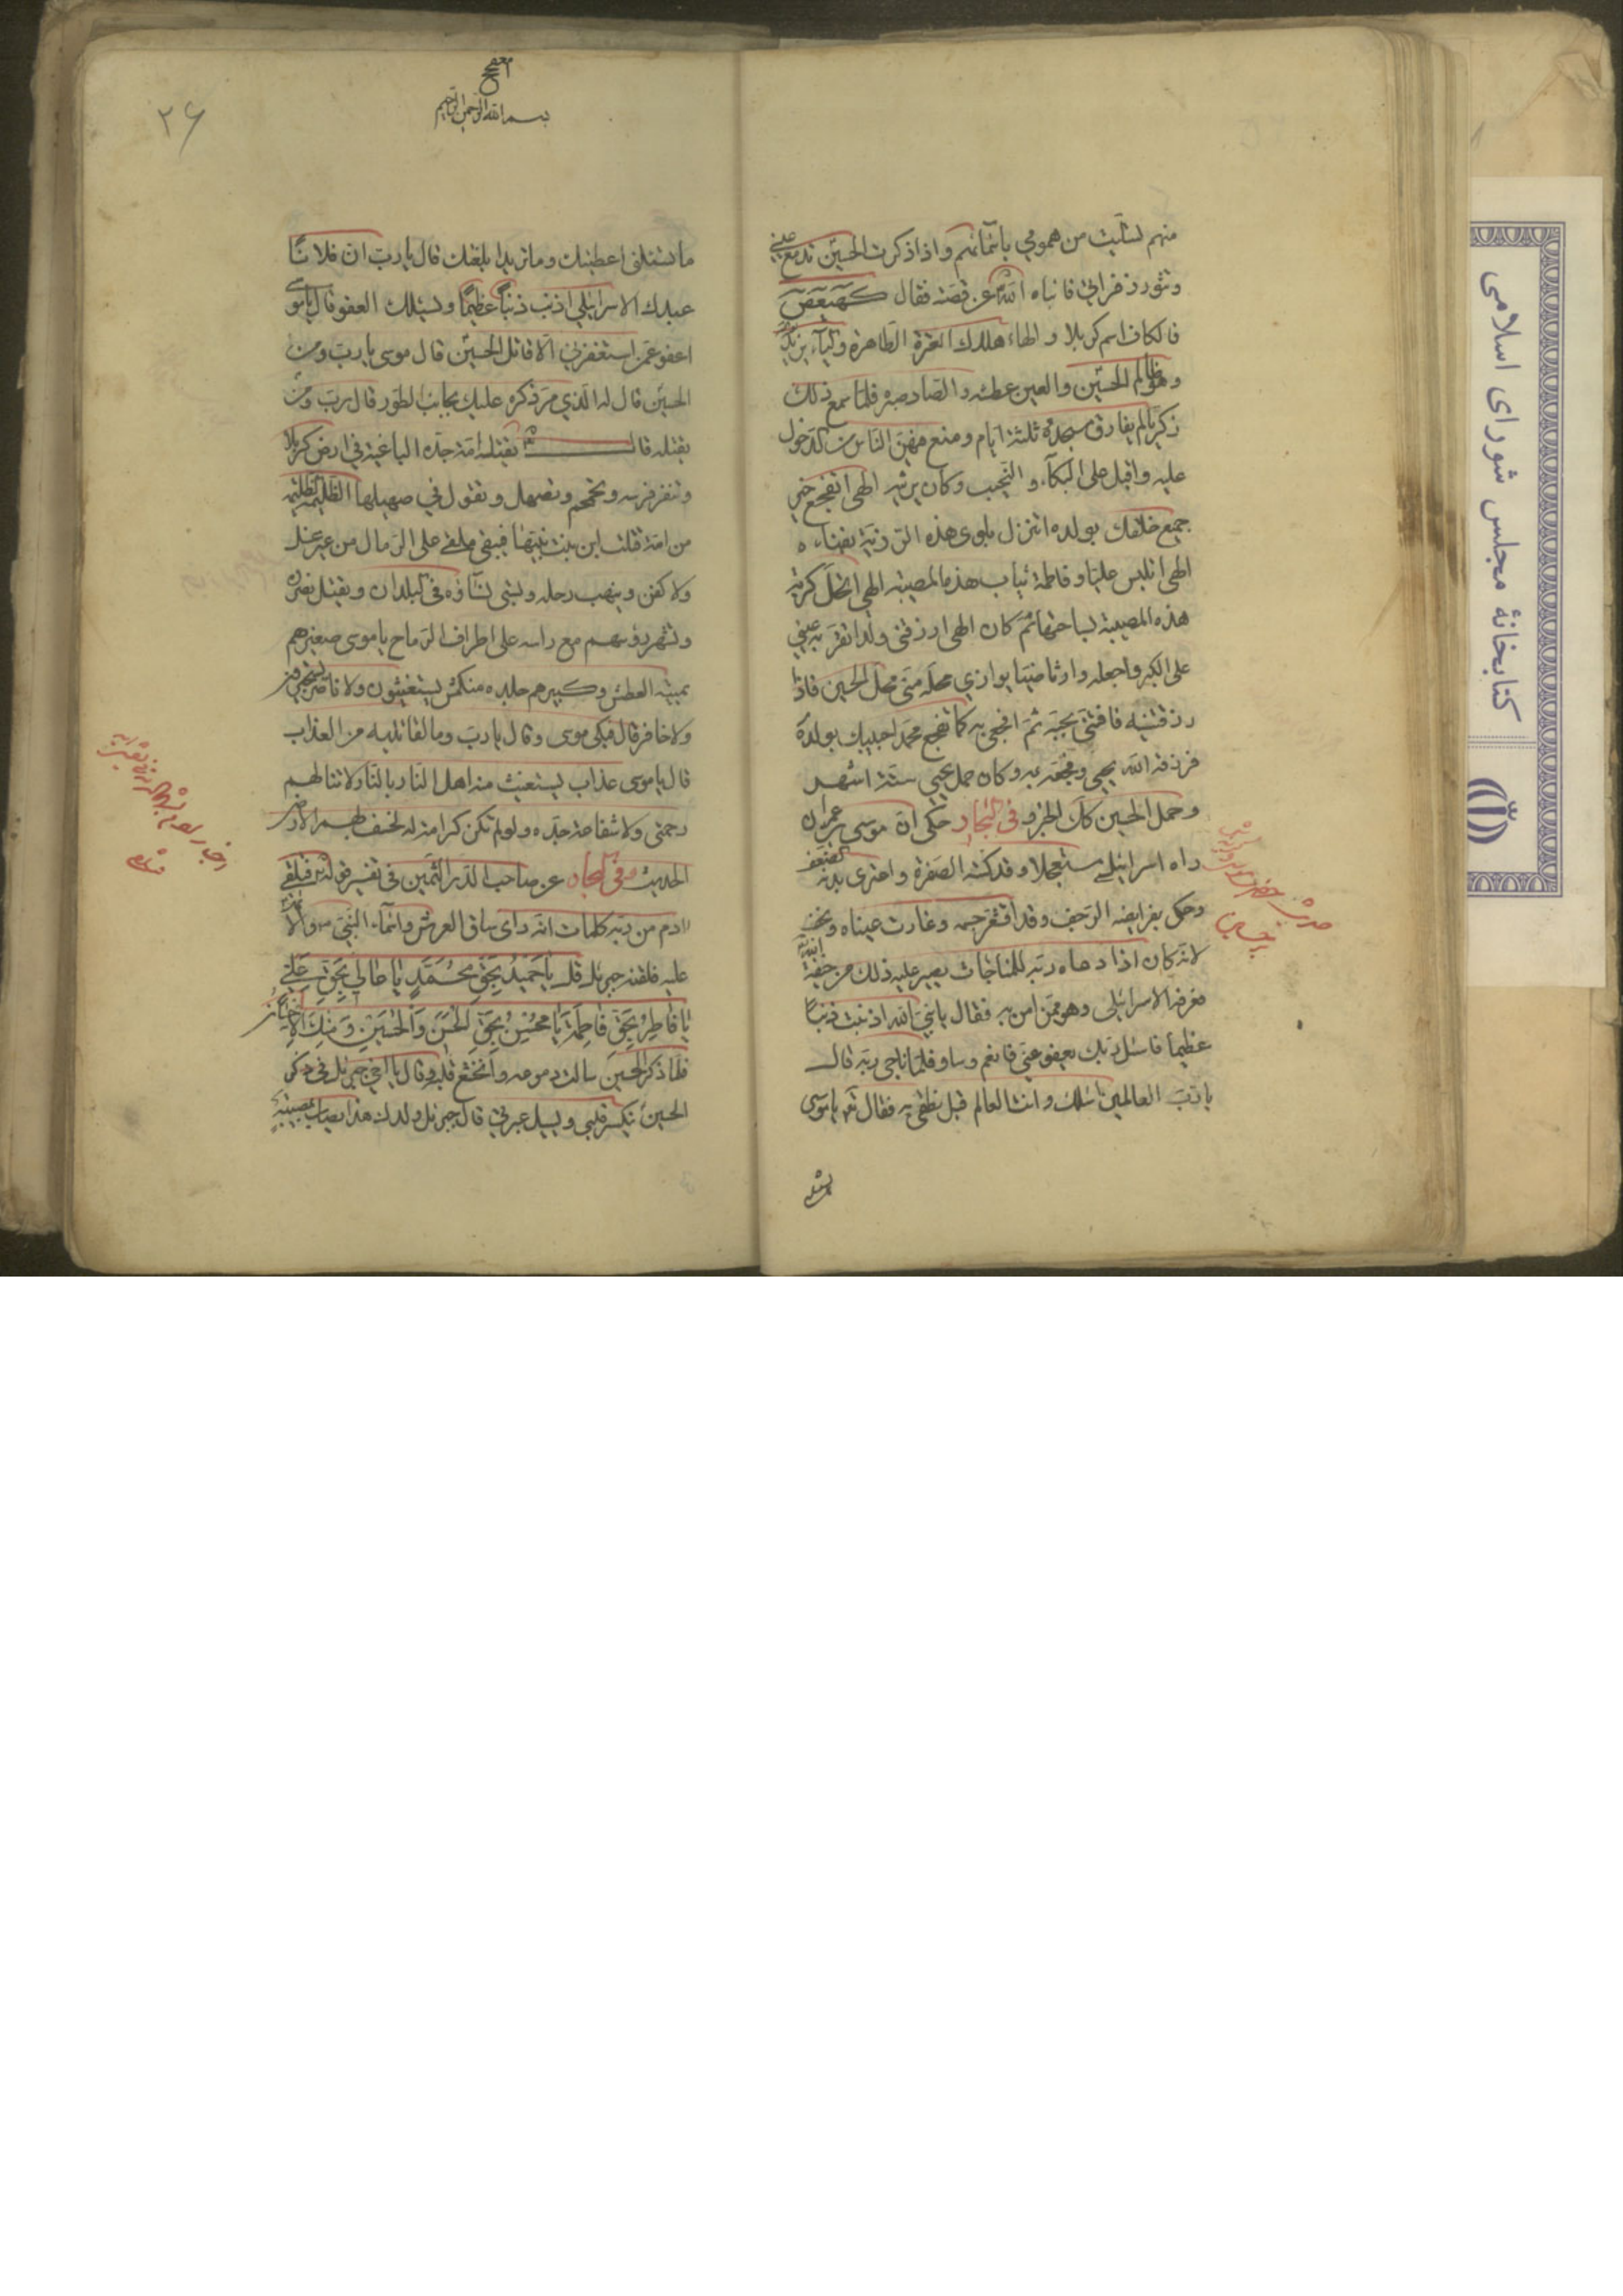 منهم تسليت من همومي باسمائهم واذا ذكرت الحسين تدمع عيني
وتثور زفراتي فانباه الله عن قصته فقال كهيعص
فالكاف اسم كربلا والهاء هلاك العترة الطاهرة والياء يزيد
وهو ظالم الحسين والعين عطشه والصاد صبره فلما سمع ذلك
زكريا لم يفارق مسجده ثلثة ايام ومنع فيهن الناس من الدخول
عليه واقبل على البكاء والنحيب وكان يرثيه الهي اتفجع خير
جميع خلقك بولده اتنزل بلوى هذه الرزية بفنائه
الهي اتلبس عليا وفاطمة ثياب هذه المصيبة الهي اتحل كربة
هذه المصيبة بساحتهما ثم كان الهي ارزقني ولدا تقر به عيني
على الكبر واجعله وارثا وصيا يوازي محله مني محل الحسين فاذا
رزقتنيه فافتني بحبه ثم افجعني به كما تفجع محمدا حبيبك بولده
فرزقه الله يحيى وفجعه به وكان حمل يحيى ستة اشهر
وحمل الحسين كك الخبر وفي البحار حكى ان موسى بن عمران
راه اسرائيلي مستعجلا وقد كسته الصفرة واعترى بدنه الضعف
وحكم بفرايصه الرجف وقد اقشعر جسمه وغارت عيناه ونحف
لانه كان اذا دعاه ربه للمناجات يصير عليه ذلك من خيفة الله
فعرفه الاسرائيلي وهو ممن امن به فقال يا نبي الله اذنبت ذنبا
عظيما فاسئل ربك يعفو عني فانعم وسار فلما ناجى ربه قال
يا رب العالمين اسئلك وانت العالم قبل نطقي به فقال تع يا موسى
كتابخانهٔ مجلس شورای اسلامی
بسم الله الرحمن الرحيم
٢۶
ما تسئلني اعطيتك وما تريد ابلغتك قال يا رب ان فلانا
عبدك الاسرائيلي اذنب ذنبا عظيما ويسئلك العفو قال يا موسى
اعفو عمن استغفرني الا قاتل الحسين قال موسى يا رب ومن
الحسين قال له الذي مر ذكره عليك بجانب الطور قال رب ومن
يقتله قال يقتله امة جده الباغية في ارض كربلا
وتنفر فرسه وتحمحم وتصهل وتقول في صهيلها الظليمة الظليمة
من امة قتلت ابن بنت نبيها فيبقى ملقى على الرمال من غير غسل
ولا كفن وينهب رحله وتسبى نساؤه في البلدان ويقتل ناصره
وتشهر رؤسهم مع راسه على اطراف الرماح يا موسى صغيرهم
يميته العطش وكبيرهم جلده منكمش يستغيثون ولا ناصر ويستجيرون
ولا خافر قال فبكى موسى وقال يا رب وما لقاتليه من العذاب
قال يا موسى عذاب يستغيث منه اهل النار بالنار ولا تنالهم
رحمتي ولا شفاعة جده ولو لم تكن كرامة له لخسفت بهم الارض
الحديث وفي البحار عن صاحب الدر الثمين في تفسير قوله تع فتلقى
ادم من ربه كلمات انه راى ساق العرش واسماء النبي والائمة
عليه فلقنه جبرئيل قل يا حميد بحق محمد يا عالي بحق علي
يا فاطر بحق فاطمة يا محسن بحق الحسن والحسين ومنك الاحسان
فلما ذكر الحسين سالت دموعه وانخشع قلبه وقال يا اخي جبرئيل في ذكر
الحسين ينكسر قلبي ويسيل عبرتي قال جبرئيل ولدك هذا يصاب بمصيبة